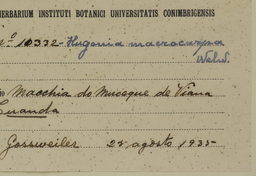 HERBARIUM INSTITUTI BOTANICI UNIVERSITATIS CONIMBRIGENSIS
Nº 10332 - Hugonia macrocarpa
Welw.
Macchia do Museque de Viana
Luanda
Gossweiler 28 agosto 1935